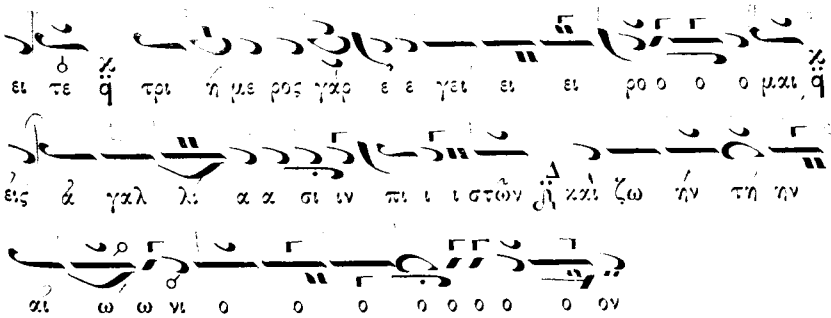 ει τε ϗ q̈ τρι ή με ρος γάρ ε ε γει ει ει ρο ο ο ο μαι, ϗ q̈
εἰς ἀ γαλ λί α α σι ιν πι ι ι στῶν Δ καὶ ζω ήν τή ην
αἰ ω ω νι ο ο ο ο ο ο ο ο ον